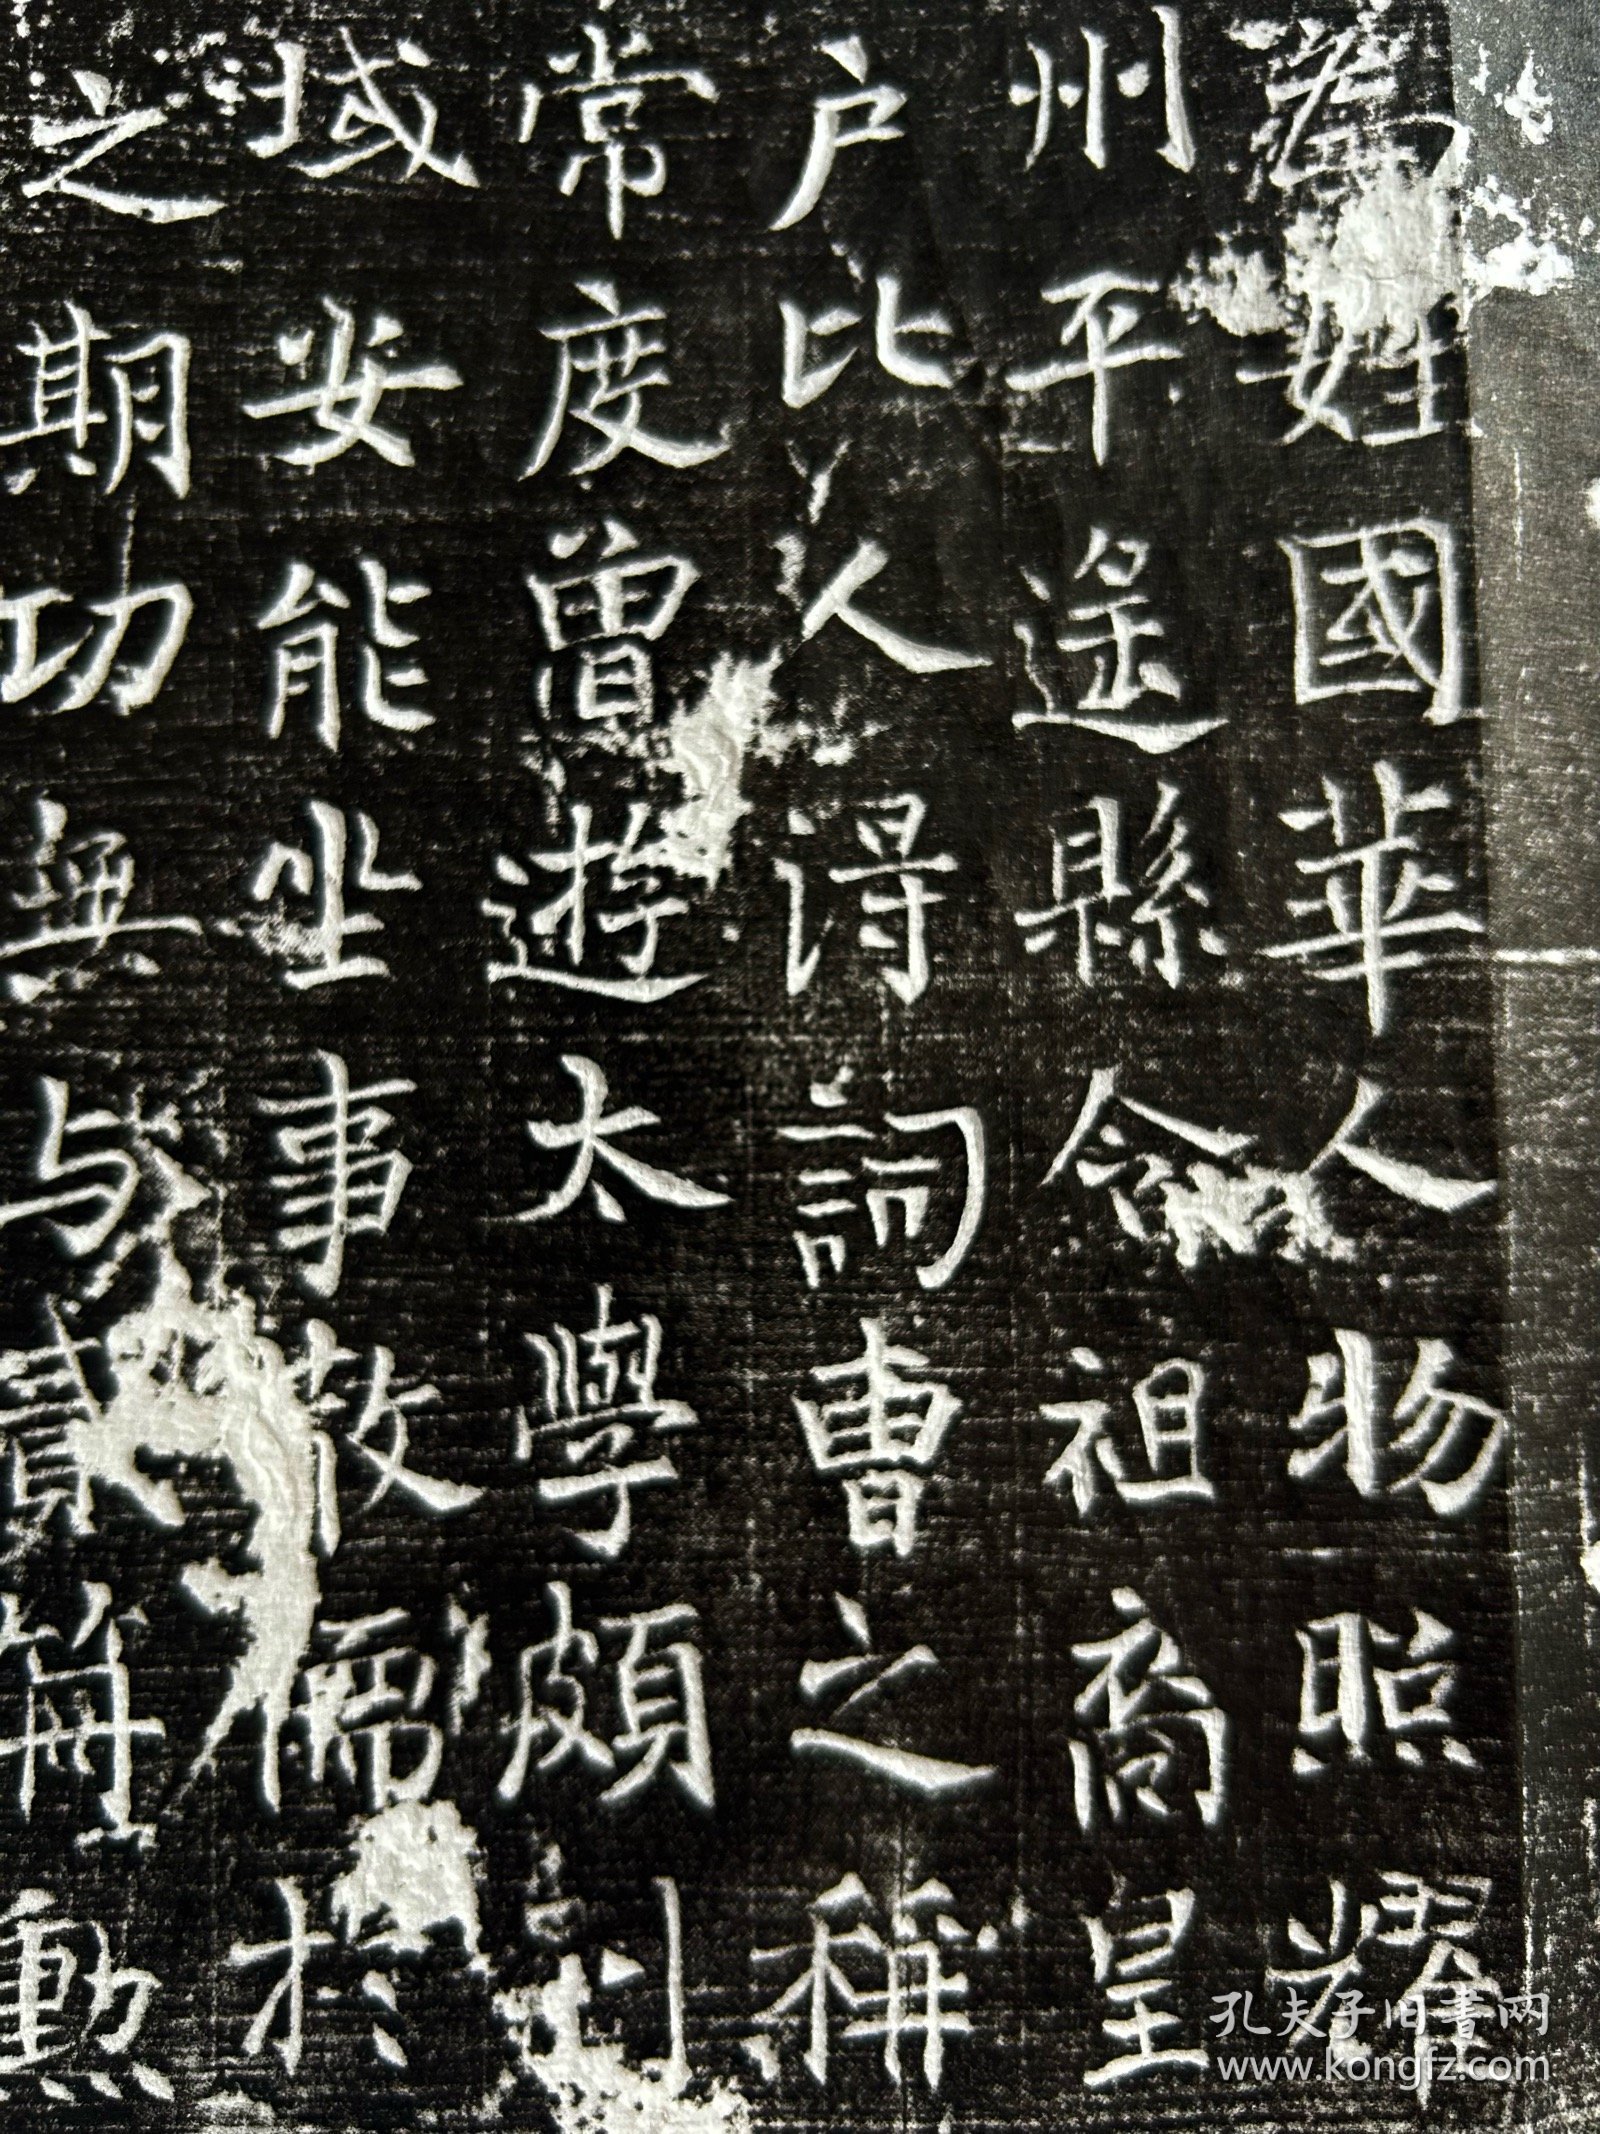 著姓國華人物照耀
州平遙縣令祖商皇
户比人得詞曹之稱
常度曾遊太學頗
域安能坐事散儒於
之期功無与貳冊勳
孔夫子旧书网
www.kongfz.com